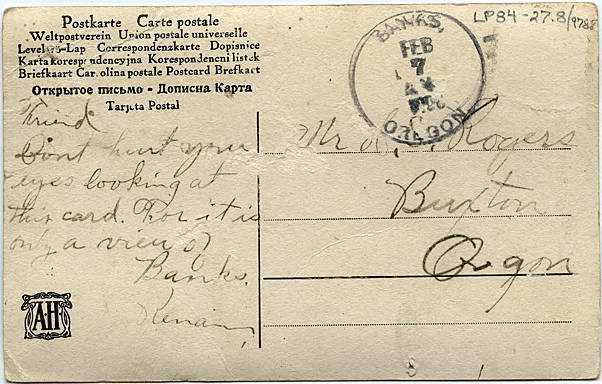 LP84-27.8/978
Postkarte Carte postale
Weltpostverein Union postale universelle
Levelező-Lap Correspondenzkarte Dopisnice
Karta korespondencyjna Korespondenční lístek
Briefkaart Cartolina postale Postcard Brefkort
Открытое письмо - Дописна Карта
Tarjeta Postal
BANKS,
FEB
7
OREGON
Friend
Dont hurt your
eyes looking at
this card. For it is
only a view of
Banks.
AH
Mr Rogers
Buxton
Oregon